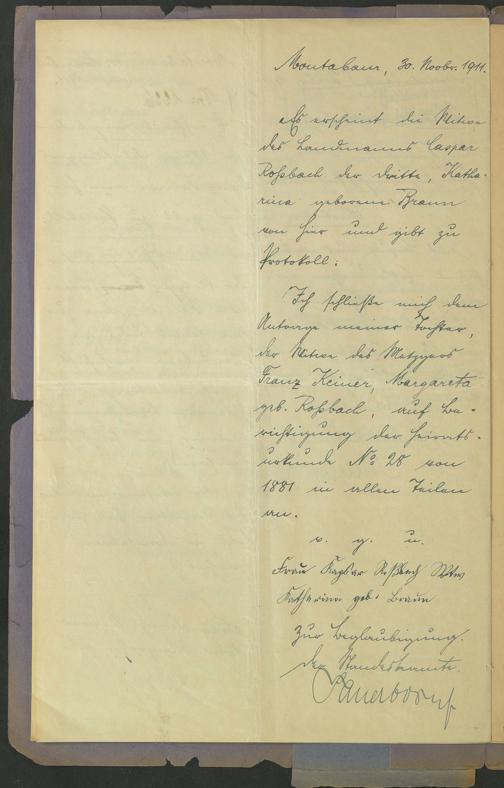 Montabaur, 30. Novbr. 1911.
Es erscheint die Witwe
des Landmanns Caspar
Roßbach der dritte, Katha-
rina geborene Braun
von hier und gibt zu
Protokoll:
Ich schließe mich dem
Antrage meiner Tochter,
der Witwe des Metzgers
Franz Keiner, Margareta
geb. Roßbach, auf Be-
richtigung der Heirats-
urkunde No 28 von
1881 in allen Teilen
an.
v. g. u.
Frau Kaspar Roßbach Wtw
Katharina geb. Braun
Zur Beglaubigung.
Der Standesbeamte.
Sauerborn